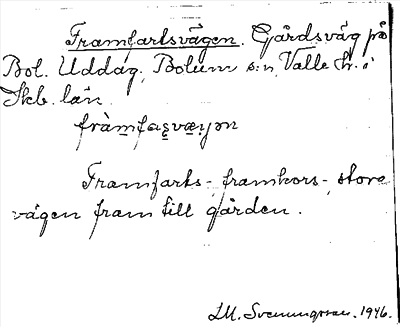 Framfartsvägen. Gårdsväg på
Bol. Uddag, Bolum s:n, Valle hr. i
Skb. län.
fràmfaʂvæɣən
Framfarts-, framkors-, stora
vägen fram till gården.
LM. Svenungsson. 1946.